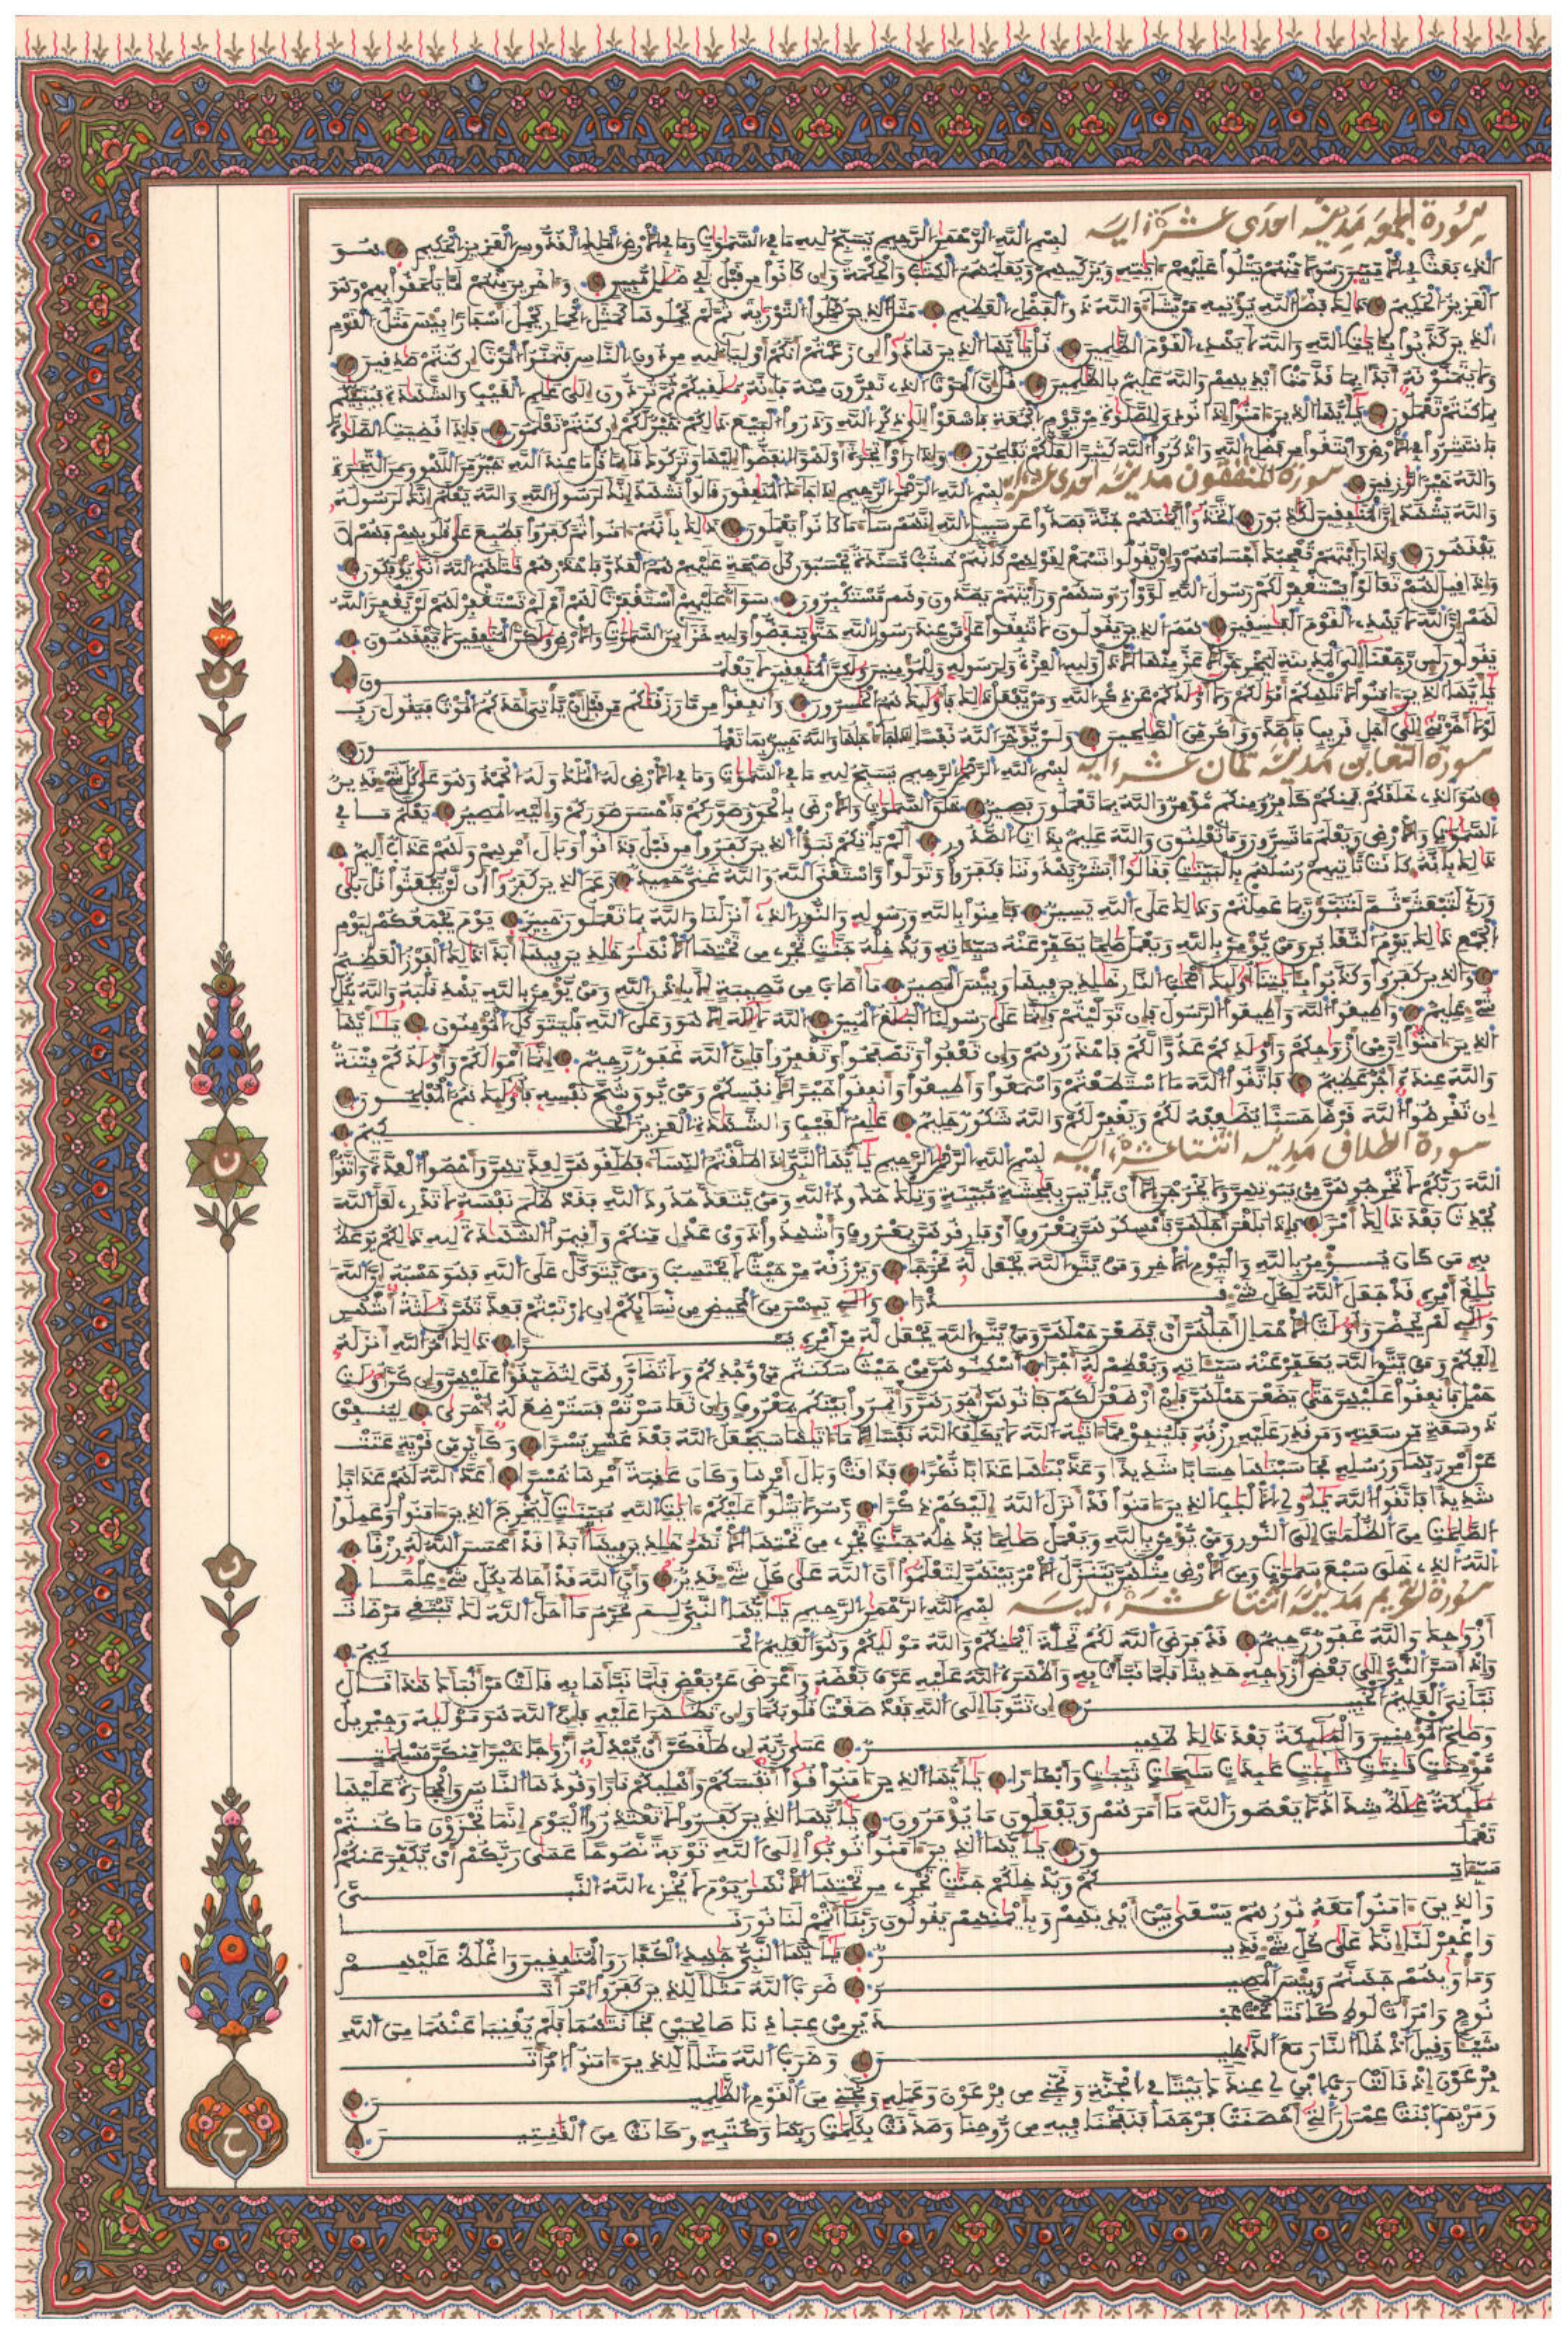 سورة الجمعة مدنية احدى عشرة ءاية بسم الله الرحمن الرحيم يسبح لله ما في السموت وما في الارض الملك القدوس العزيز الحكيم هو
الذي بعث في الاميين رسولا منهم يتلوا عليهم ءايته ويزكيهم ويعلمهم الكتب والحكمة وان كانوا من قبل لفي ضلل مبين وءاخرين منهم لما يلحقوا بهم وهو
العزيز الحكيم ذلك فضل الله يوتيه من يشاء والله ذو الفضل العظيم مثل الذين حملوا التورية ثم لم يحملوها كمثل الحمار يحمل اسفارا بيس مثل القوم
الذين كذبوا بايت الله والله لا يهدي القوم الظلمين قل يأيها الذين هادوا ان زعمتم انكم اولياء لله من دون الناس فتمنوا الموت ان كنتم صدقين
ولا يتمنونه أبدا بما قدمت أيديهم والله عليم بالظلمين قل ان الموت الذي تفرون منه فانه ملقيكم ثم تردون الى علم الغيب والشهدة فينبئكم
بما كنتم تعملون يأيها الذين ءامنوا اذا نودي للصلوة من يوم الجمعة فاسعوا الى ذكر الله وذروا البيع ذلكم خير لكم ان كنتم تعلمون فاذا قضيت الصلوة
فانتشروا في الارض وابتغوا من فضل الله واذكروا الله كثيرا لعلكم تفلحون واذا رأوا تجرة أو لهوا انفضوا اليها وتركوك قائما قل ما عند الله خير من اللهو ومن التجرة
والله خير الرزقين سورة المنفقون مدنية احدى عشرة ءاية بسم الله الرحمن الرحيم اذا جاءك المنفقون قالوا نشهد إنك لرسول الله والله يعلم إنك لرسوله
والله يشهد ان المنفقين لكذبون اتخذوا أيمنهم جنة فصدوا عن سبيل الله إنهم ساء ما كانوا يعملون ذلك بأنهم ءامنوا ثم كفروا فطبع على قلوبهم فهم لا
يفقهون واذا رأيتهم تعجبك أجسامهم وان يقولوا تسمع لقولهم كأنهم خشب مسندة يحسبون كل صيحة عليهم هم العدو فاحذرهم قتلهم الله أنى يوفكون
واذا قيل لهم تعالوا يستغفر لكم رسول الله لووا رءوسهم ورأيتهم يصدون وهم مستكبرون سواء عليهم أستغفرت لهم أم لم تستغفر لهم لن يغفر الله
لهم ان الله لا يهدي القوم الفسقين هم الذين يقولون لا تنفقوا على من عند رسول الله حتى ينفضوا ولله خزاين السموت والارض ولكن المنفقين لا يفقهون
يقولون لين رجعنا الى المدينة ليخرجن الاعز منها الاذل ولله العزة ولرسوله وللمومنين ولكن المنفقين لا يعلمون
يأيها الذين ءامنوا لا تلهكم أمولكم ولا أولدكم عن ذكر الله ومن يفعل ذلك فأوليك هم الخسرون وأنفقوا من ما رزقنكم من قبل أن ياتي أحدكم الموت فيقول رب
لولا أخرتني إلى أجل قريب فأصدق وأكن من الصلحين ولن يوخر الله نفسا إذا جاء أجلها والله خبير بما تعملون
سورة التغابن مدنية ثمان عشرة ءاية بسم الله الرحمن الرحيم يسبح لله ما في السموت وما في الارض له الملك وله الحمد وهو على كل شيء قدير
هو الذي خلقكم فمنكم كافر ومنكم مومن والله بما تعملون بصير خلق السموت والارض بالحق وصوركم فأحسن صوركم وإليه المصير يعلم ما في
السموت والارض ويعلم ما تسرون وما تعلنون والله عليم بذات الصدور ألم ياتكم نبؤا الذين كفروا من قبل فذاقوا وبال أمرهم ولهم عذاب أليم
ذلك بأنه كانت تاتيهم رسلهم بالبينت فقالوا أبشر يهدوننا فكفروا وتولوا واستغنى الله والله غني حميد زعم الذين كفروا أن لن يبعثوا قل بلى
وربي لتبعثن ثم لتنبؤن بما عملتم وذلك على الله يسير فامنوا بالله ورسوله والنور الذي أنزلنا والله بما تعملون خبير يوم يجمعكم ليوم
الجمع ذلك يوم التغابن ومن يومن بالله ويعمل صلحا نكفر عنه سيئاته وندخله جنت تجري من تحتها الانهر خلدين فيها أبدا ذلك الفوز العظيم
والذين كفروا وكذبوا بايتنا أوليك أصحب النار خلدين فيها وبيس المصير ما أصاب من مصيبة إلا بإذن الله ومن يومن بالله يهد قلبه والله بكل
شيء عليم وأطيعوا الله وأطيعوا الرسول فإن توليتم فإنما على رسولنا البلغ المبين الله لا إله إلا هو وعلى الله فليتوكل المومنون يأيها
الذين ءامنوا إن من أزوجكم وأولدكم عدوا لكم فاحذروهم وإن تعفوا وتصفحوا وتغفروا فإن الله غفور رحيم إنما أمولكم وأولدكم فتنة
والله عنده أجر عظيم فاتقوا الله ما استطعتم واسمعوا وأطيعوا وأنفقوا خيرا لانفسكم ومن يوق شح نفسه فأوليك هم المفلحون
إن تقرضوا الله قرضا حسنا يضعفه لكم ويغفر لكم والله شكور حليم علم الغيب والشهدة العزيز الحكيم
سورة الطلاق مدنية اثنتا عشرة ءاية بسم الله الرحمن الرحيم يأيها النبي إذا طلقتم النساء فطلقوهن لعدتهن وأحصوا العدة واتقوا
الله ربكم لا تخرجوهن من بيوتهن ولا يخرجن إلا أن ياتين بفحشة مبينة وتلك حدود الله ومن يتعد حدود الله فقد ظلم نفسه لا تدري لعل الله
يحدث بعد ذلك أمرا فإذا بلغن أجلهن فأمسكوهن بمعروف أو فارقوهن بمعروف وأشهدوا ذوي عدل منكم وأقيموا الشهدة لله ذلكم يوعظ
به من كان يومن بالله واليوم الاخر ومن يتق الله يجعل له مخرجا ويرزقه من حيث لا يحتسب ومن يتوكل على الله فهو حسبه إن الله
بلغ أمره قد جعل الله لكل شيء قدرا والي ييسن من المحيض من نسايكم إن ارتبتم فعدتهن ثلثة أشهر
والي لم يحضن وأولت الاحمال أجلهن أن يضعن حملهن ومن يتق الله يجعل له من أمره يسرا ذلك أمر الله أنزله
إليكم ومن يتق الله يكفر عنه سيئاته ويعظم له أجرا أسكنوهن من حيث سكنتم من وجدكم ولا تضاروهن لتضيقوا عليهن وإن كن أولت
حمل فأنفقوا عليهن حتى يضعن حملهن فإن أرضعن لكم فاتوهن أجورهن واتمروا بينكم بمعروف وإن تعاسرتم فسترضع له أخرى لينفق
ذو سعة من سعته ومن قدر عليه رزقه فلينفق مما ءاتيه الله لا يكلف الله نفسا إلا ما ءاتيها سيجعل الله بعد عسر يسرا وكأين من قرية عتت
عن أمر ربها ورسله فحاسبنها حسابا شديدا وعذبنها عذابا نكرا فذاقت وبال أمرها وكان عقبة أمرها خسرا أعد الله لهم عذابا
شديدا فاتقوا الله يأولي الالبب الذين ءامنوا قد أنزل الله إليكم ذكرا رسولا يتلوا عليكم ءايت الله مبينت ليخرج الذين ءامنوا وعملوا
الصلحت من الظلمت إلى النور ومن يومن بالله ويعمل صلحا ندخله جنت تجري من تحتها الانهر خلدين فيها أبدا قد أحسن الله له رزقا
الله الذي خلق سبع سموت ومن الارض مثلهن يتنزل الامر بينهن لتعلموا أن الله على كل شيء قدير وأن الله قد أحاط بكل شيء علما
سورة التحريم مدنية اثنتا عشرة ءاية بسم الله الرحمن الرحيم يأيها النبي لم تحرم ما أحل الله لك تبتغي مرضات
أزوجك والله غفور رحيم قد فرض الله لكم تحلة أيمنكم والله موليكم وهو العليم الحكيم
وإذ أسر النبي إلى بعض أزوجه حديثا فلما نبأت به وأظهره الله عليه عرف بعضه وأعرض عن بعض فلما نبأها به قالت من أنبأك هذا قال
نبأني العليم الخبير إن تتوبا إلى الله فقد صغت قلوبكما وإن تظهرا عليه فإن الله هو موليه وجبريل
وصلح المومنين والمليكة بعد ذلك ظهير عسى ربه إن طلقكن أن يبدله أزوجا خيرا منكن مسلمت
مومنت قنتت تيبت عبدت سيحت ثيبت وأبكارا يأيها الذين ءامنوا قوا أنفسكم وأهليكم نارا وقودها الناس والحجارة عليها
مليكة غلظ شداد لا يعصون الله ما أمرهم ويفعلون ما يومرون يأيها الذين كفروا لا تعتذروا اليوم إنما تجزون ما كنتم
تعملون يأيها الذين ءامنوا توبوا إلى الله توبة نصوحا عسى ربكم أن يكفر عنكم
سيئاتكم ويدخلكم جنت تجري من تحتها الانهر يوم لا يخزي الله النبي
والذين ءامنوا معه نورهم يسعى بين أيديهم وبأيمنهم يقولون ربنا أتمم لنا نورنا
واغفر لنا إنك على كل شيء قدير يأيها النبي جهد الكفار والمنفقين واغلظ عليهم
ومأويهم جهنم وبيس المصير ضرب الله مثلا للذين كفروا امرأت
نوح وامرأت لوط كانتا تحت عبدين من عبادنا صلحين فخانتهما فلم يغنيا عنهما من الله
شيئا وقيل ادخلا النار مع الدخلين وضرب الله مثلا للذين ءامنوا امرأت
فرعون إذ قالت رب ابن لي عندك بيتا في الجنة ونجني من فرعون وعمله ونجني من القوم الظلمين
ومريم ابنت عمرن التي أحصنت فرجها فنفخنا فيه من روحنا وصدقت بكلمت ربها وكتبه وكانت من القنتين